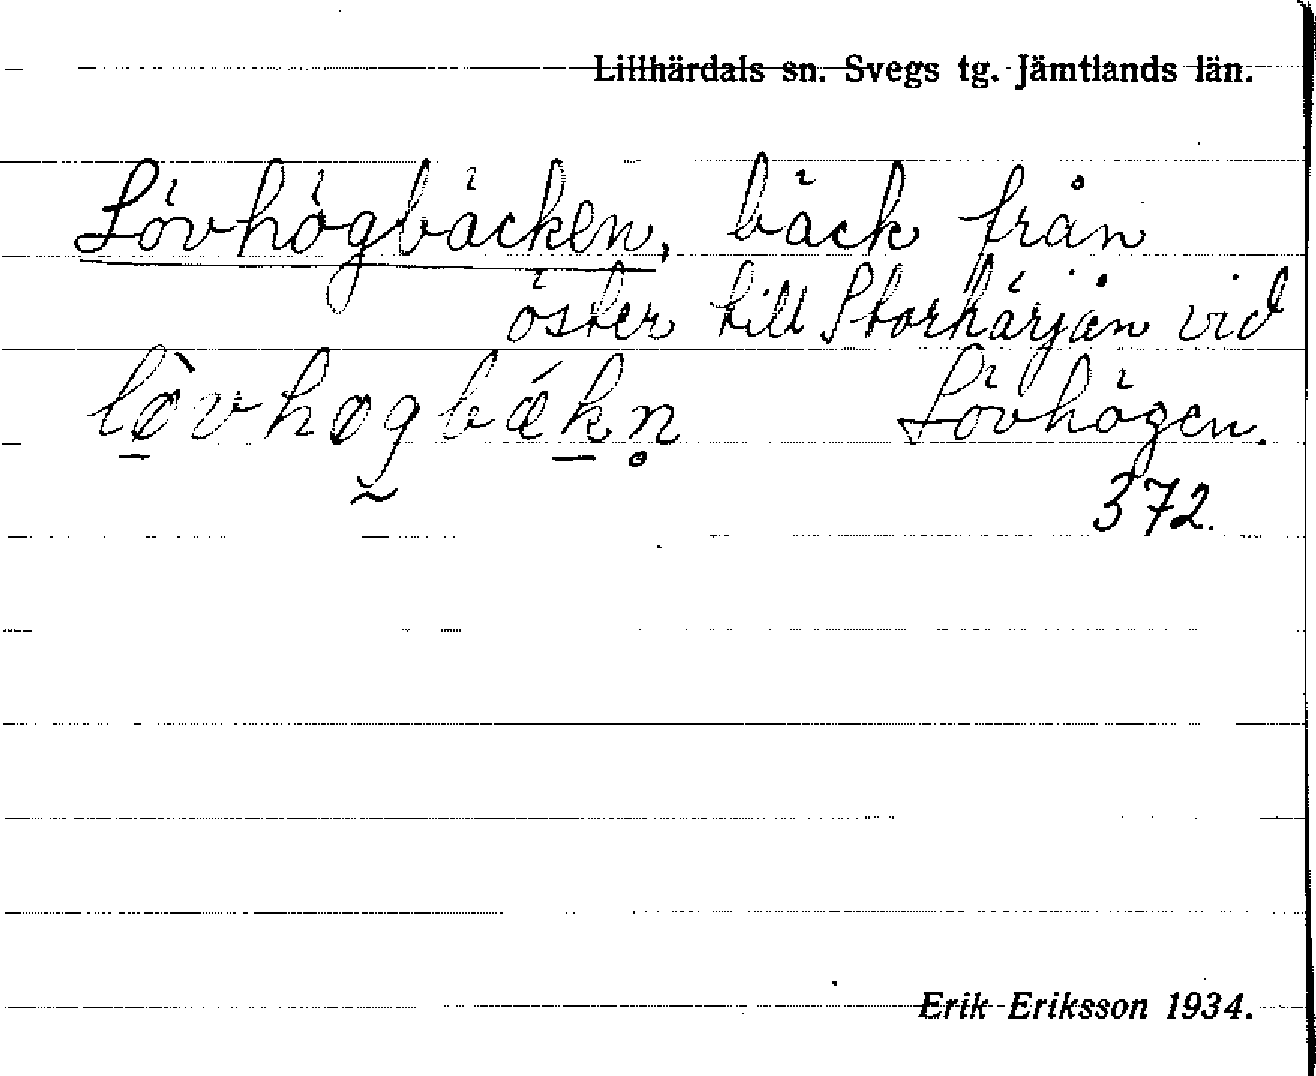 Lillhärdals sn. Svegs tg. Jämtlands län.
Lövhögbäcken, bäck från
öster till Storhärjån vid
lø̀vhøgbǽkn̥ Lövhögen.
372.
Erik Eriksson 1934.